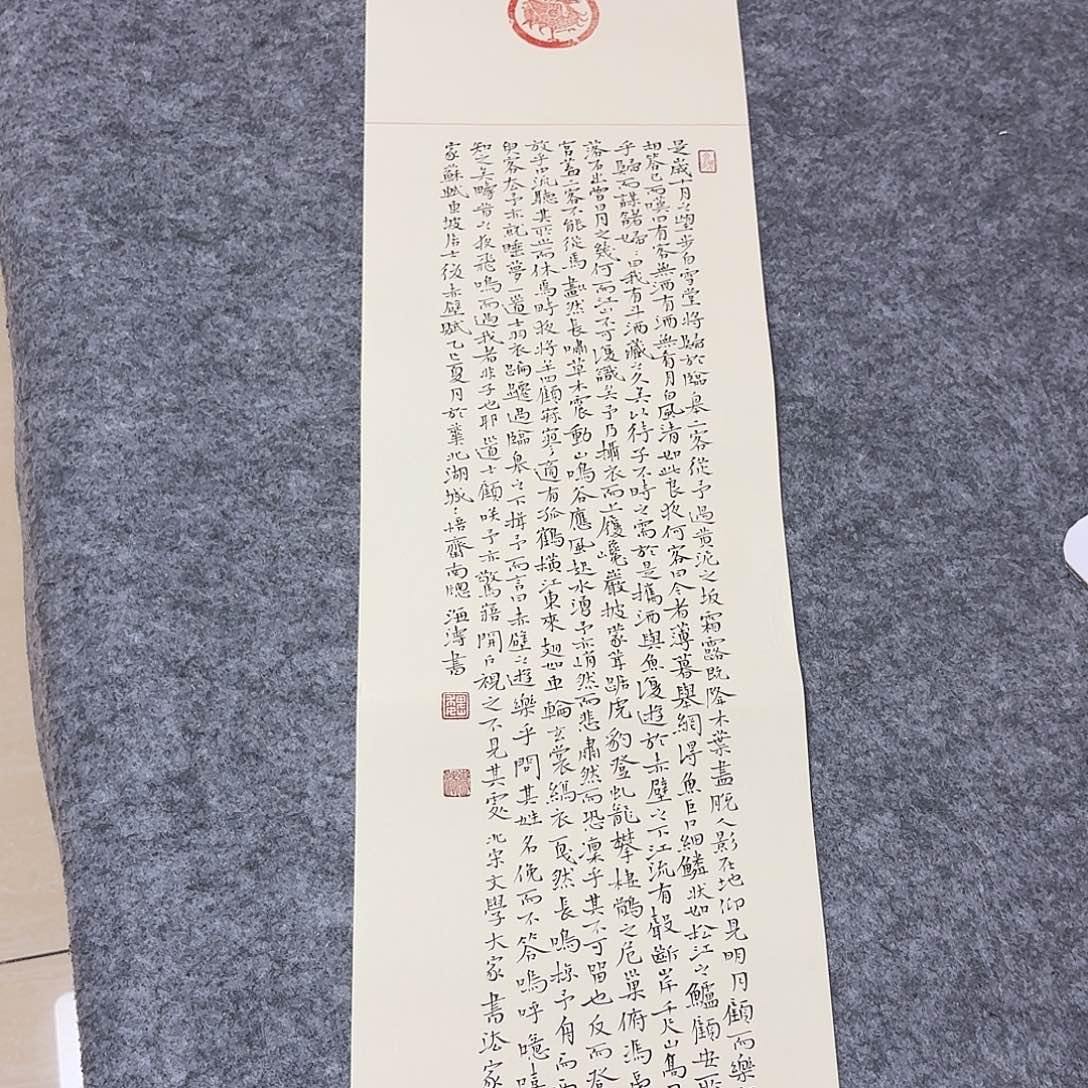 是歲十月之望步自雪堂將歸於臨皋二客從予過黄泥之坂霜露既降木葉盡脫人影在地仰見明月顧而樂
相答已而嘆曰有客無酒有酒無肴月白風清如此良夜何客曰今者薄暮舉網得魚巨口細鱗狀如松江之鱸顧安所
乎歸而謀諸婦婦曰我有斗酒藏之久矣以待子不時之需於是攜酒與魚復遊於赤壁之下江流有聲斷岸千尺山高月
落石出曾日月之幾何而江山不可復識矣予乃攝衣而上履巉巖披蒙茸踞虎豹登虬龍攀棲鶻之危巢俯馮夷
宫蓋二客不能從焉劃然長嘯草木震動山鳴谷應風起水湧予亦悄然而悲肅然而恐凜乎其不可留也反而登
放乎中流聽其所止而休焉時夜將半四顧寂寥適有孤鶴橫江東來翅如車輪玄裳縞衣戛然長鳴掠予舟而西
與客去予亦就睡夢一道士羽衣蹁躚過臨皋之下揖予而言曰赤壁之遊樂乎問其姓名俛而不答嗚呼噫嘻
知之矣疇昔之夜飛鳴而過我者非子也耶道士顧咲予亦驚寤開户視之不見其處 北宋文學大家書法家
家蘇軾東坡居士後赤壁賦乙巳夏月於葉北湖城悟齋南牕海濤書